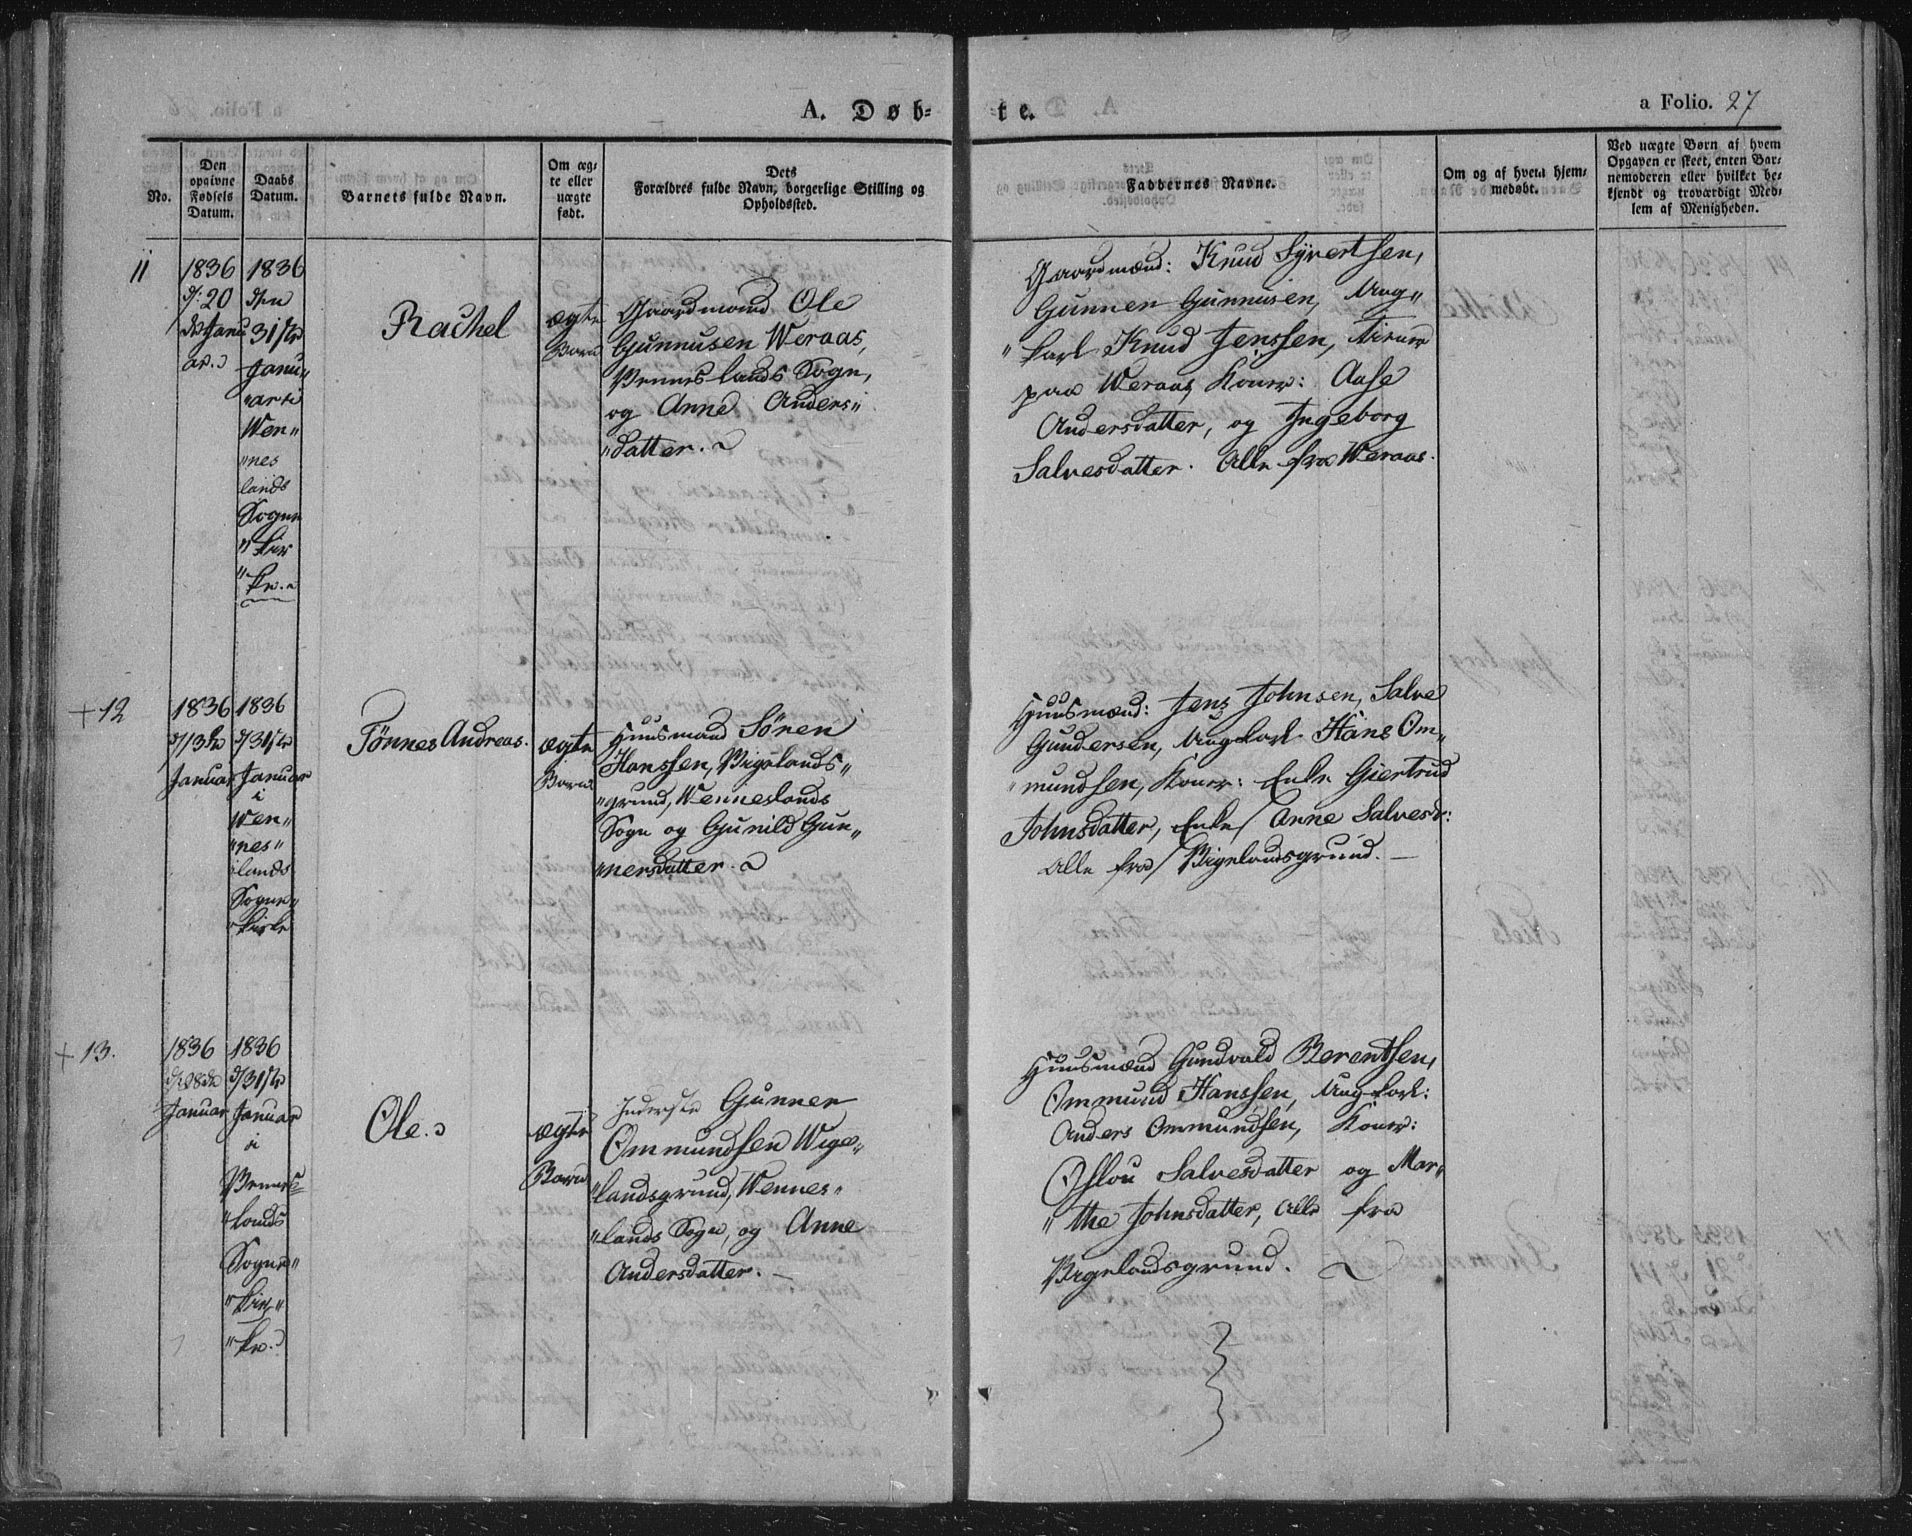 A. Døb-
te.
a Folio. 27
No.
Den opgivne Fødsels Datum.
Daabs Datum.
Barnets fulde Navn.
Om ægte eller uægte født.
Dets
Forældres fulde Navn, borgerlige Stilling og
Opholdssted.
Faddernes Navne.
Om og af hvem hjem-
medøbt.
Ved uægte Børn af hvem
Opgaven er skeet, enten Bar-
nemoderen eller hvilket be-
kjendt og troværdigt Med-
lem af Menigheden.
11
1836
20
Janu
ar.
1836
31
Janu„
„ar i
Wen„
„nes
lands
Sogne
„kir
„ke.
Rachel
ægte
Barn
Gaardmand Ole
Gunnusen Weraas,
Venneslands Sogn,
og Anne Anders„
„datter.
Gaardmænd: Knud Syvertsen,
Gunnen Gunnusen, Ung„
„karl Knud Jenssen,
paa Weraas, Koner: Aase
Andersdatter, og Ingeborg
Salvesdatter. Alle fra Weraas.
+ 12
1836
13de
Januar
1836
31
Januar
i
Wen„
„nes„
lands
Sogne„
„kirke
Tönnes Andreas.
ægte
Barn
Huusmand Sören
Hanssen, Vigelands„
„grund, Wenneslands
Sogn og Gunild Gun„
„nersdatter.
Huusmænd: Jens Johnsen, Salve
Gundersen, Ungkarl Hans Om„
„mundsen, Koner: Enke Giertrud
Johnsdatter, Enke Anne Salvesd:
alle fra Vigelandsgrund. —
+ 13.
1836
28de
Januar
1836
31
Januar
i
Vennes
„lands
Sogne„
„kir„
„ke.
Ole.
ægte
Barn
Inderste Gunner
Ommundsen Wige„
„landsgrund, Wennes„
„lands Sogn, og Anne
Andersdatter. —
Huusmænd Gundvald Berentsen,
Ommund Hanssen, Ungkarl:
Anders Ommundsen, Koner:
Oslou Salvesdatter og Mar„
„the Johnsdatter, alle fra
Vigelandsgrund.